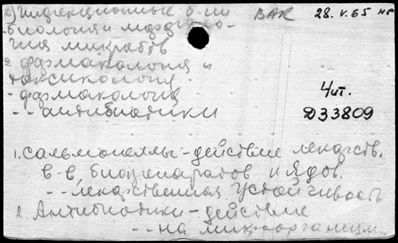 а) Инфекционные б-ни BAR 28.V.65
- биология и морфоло-
гия микробов
2. фармакология и
токсикология
- фармакология
Чит.
-- антибиотики
Д33809
1. сальмонеллы - действие лекарств.
в-в, биопрепаратов и ядов.
-- лекарственная устойчивость
2. Антибиотики - действие
-- на микроорганизм